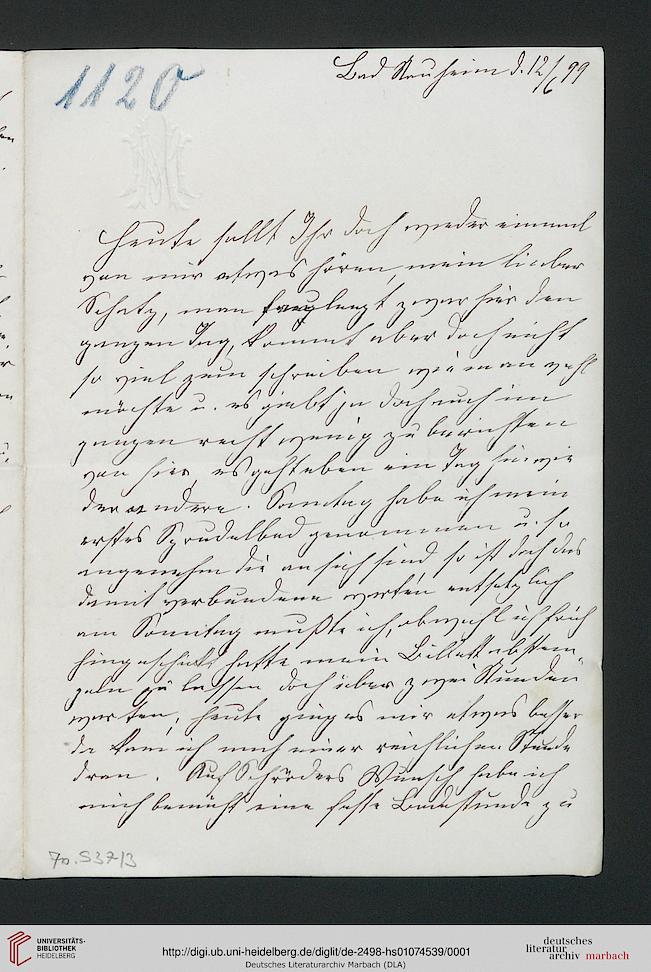 1120
Bad Nauheim d. 12/6 99
Heute sollt Ihr doch wieder einmal
von mir etwas hören, mein lieber
Schatz, man faulenzt zwar hier den
ganzen Tag, kommt aber doch nicht
so viel zum schreiben wie man wohl
möchte u. es giebt ja doch auch im
ganzen recht wenig zu berichten
von hier, es geht eben ein Tag hin wie
der andere. Sonntag habe ich mein
erstes Sprudelbad genommen u. so
angenehm die an sich sind so ist doch das
damit verbundene warten entsetzlich
am Sonntag mußte ich, obwohl ich früh
hingeschickt hatte mein Billett abstem-
peln zu lassen doch über zwei Stunden
warten, heute ging es mir etwas besser
da kam ich nach einer reichlichen Stunde
dran. Auf Schröders Wunsch habe ich
mich bemüht eine feste Badestunde zu
7a. S37/3
UNIVERSITÄTS-
BIBLIOTHEK
HEIDELBERG
http://digi.ub.uni-heidelberg.de/diglit/de-2498-hs01074539/0001
Deutsches Literaturarchiv Marbach (DLA)
deutsches
literatur
archiv marbach